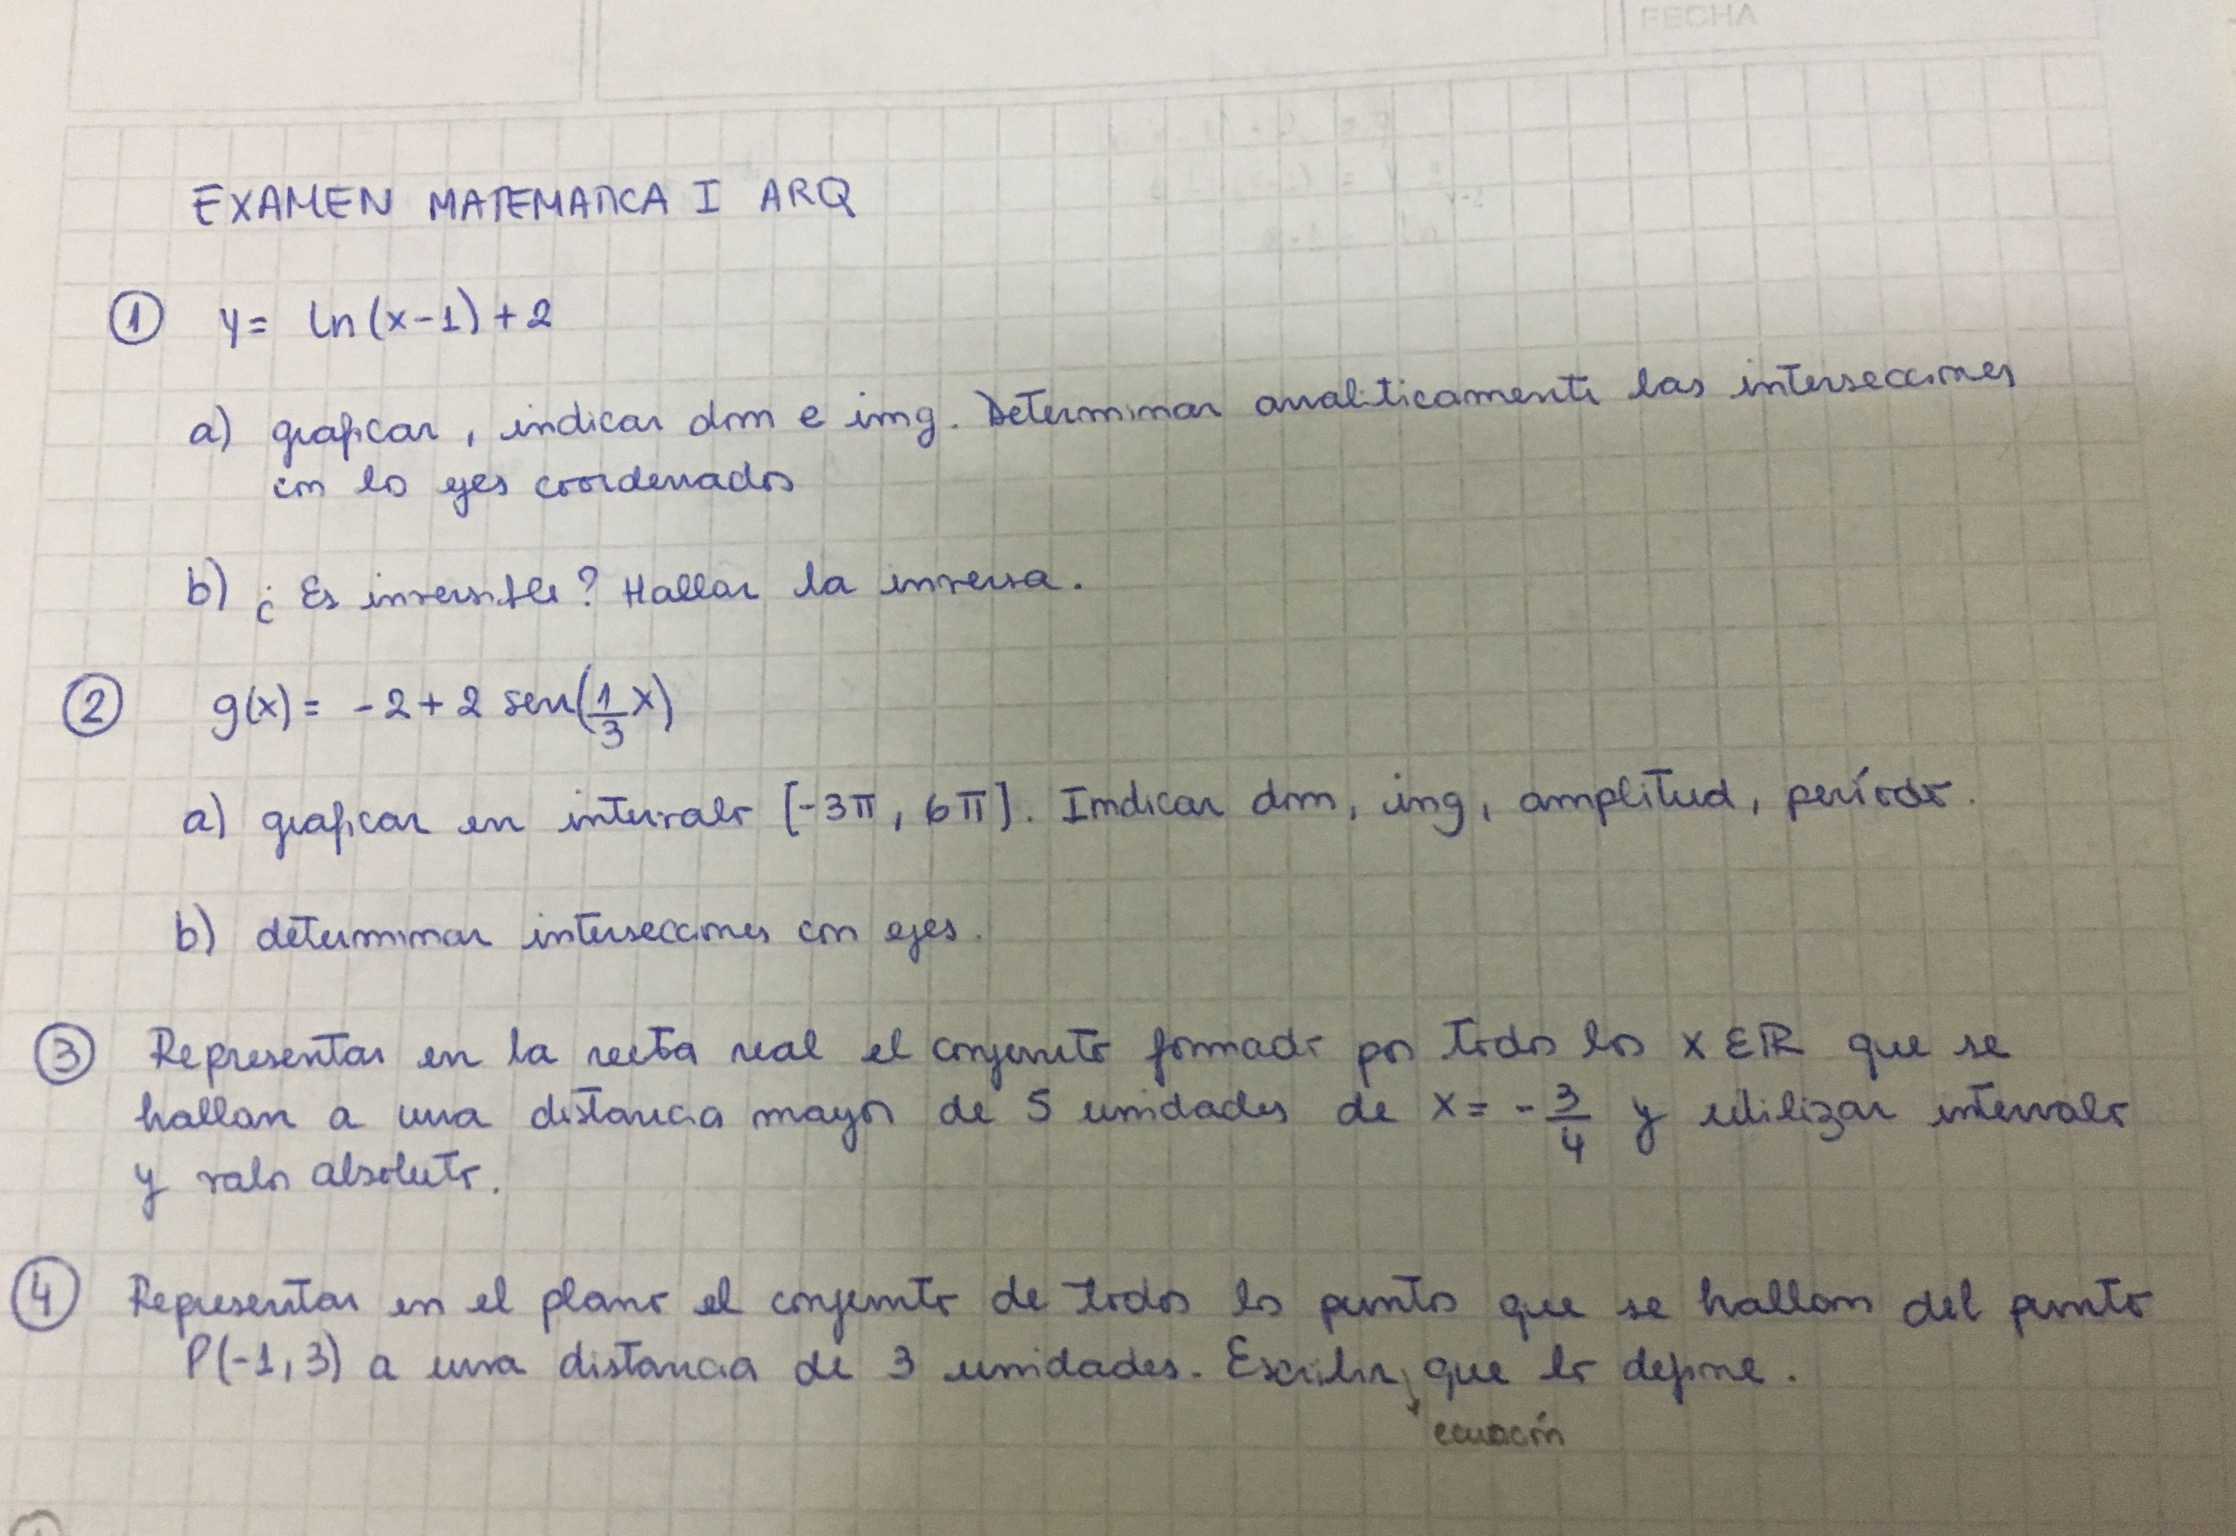 FECHA
EXAMEN MATEMATICA I ARQ
① y = ln(x-1)+2
a) graficar, indicar dom e img. Determinar analiticamente las intersecciones
con los ejes coordenados
b) ¿Es inversible? Hallar la inversa.
② g(x) = -2+2 sen(1/3 x)
a) graficar en intervalo [-3π, 6π]. Indicar dom, img, amplitud, período.
b) determinar intersecciones con ejes.
③ Representar en la recta real el conjunto formado por todos los x∈ℝ que se
hallan a una distancia mayor de 5 unidades de x = -3/4 y utilizar intervalo
y valor absoluto.
④ Representar en el plano el conjunto de todos los puntos que se hallan del punto
P(-1,3) a una distancia de 3 unidades. Escribir que lo define.
ecuación